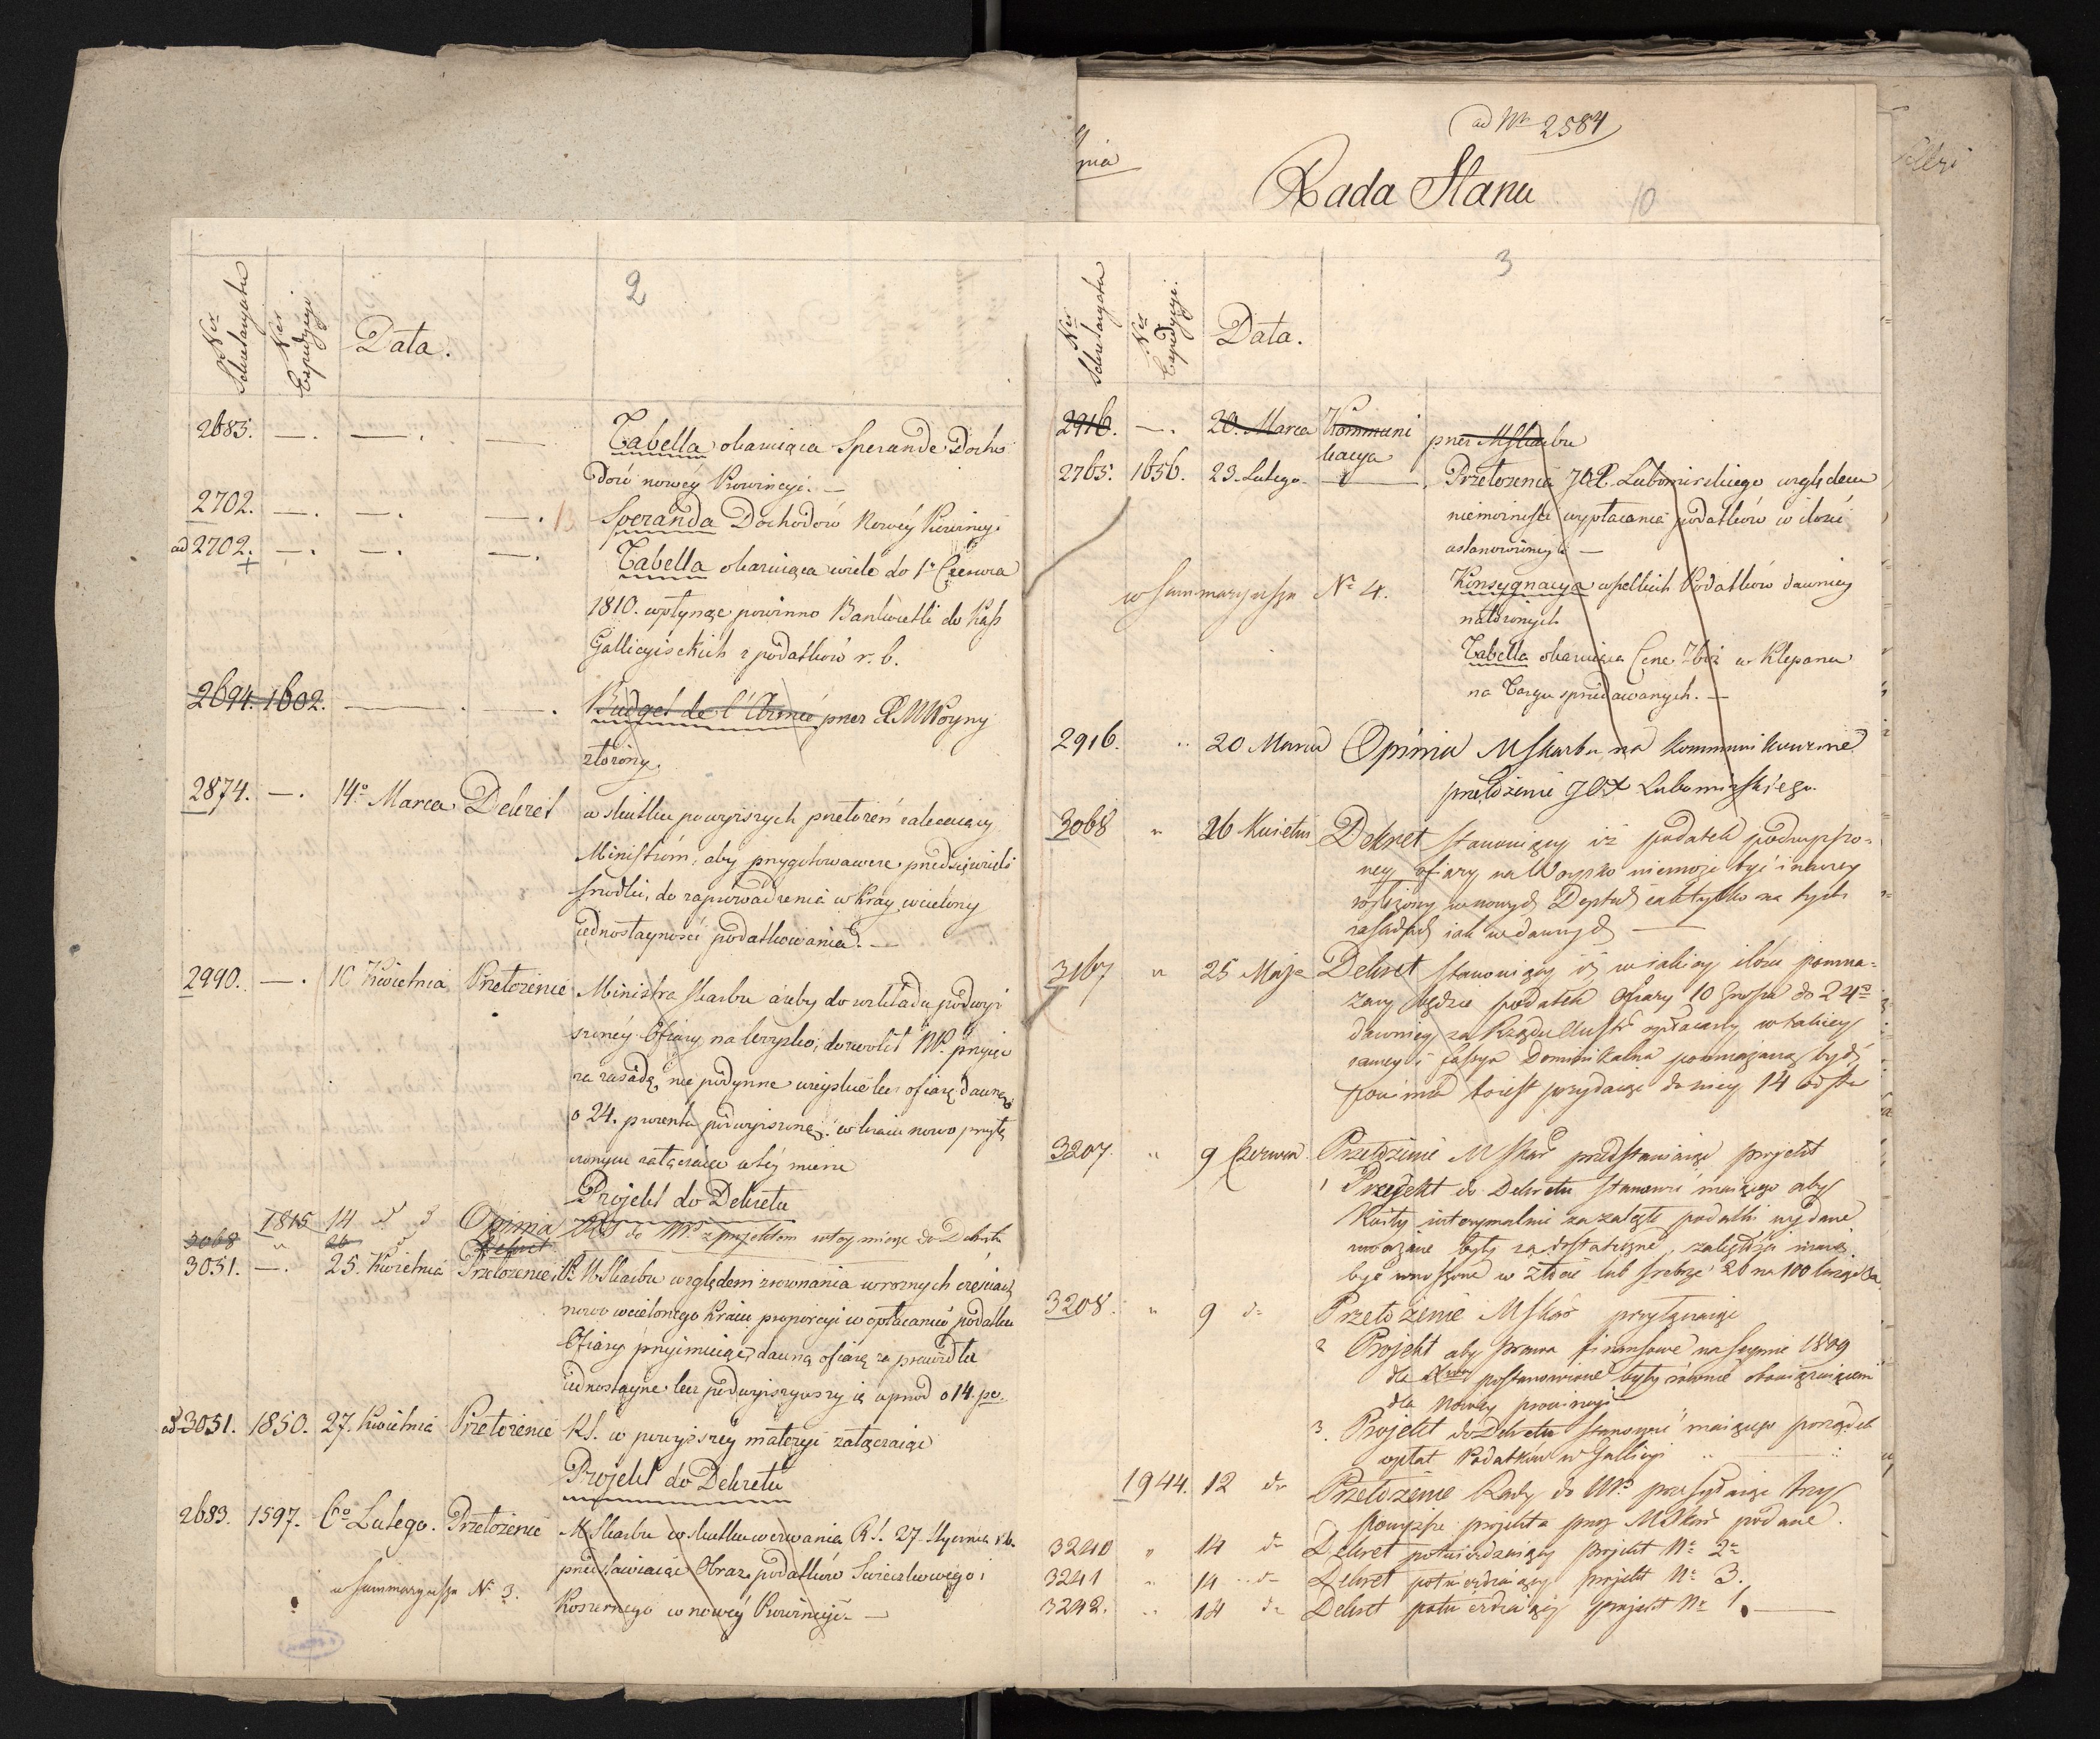 ad Nr 2584
Rada Stanu
10
2
Ner Sekretaryatu
Ner Expedycyi
Data.
2683. —. —. — Tabella okazuiąca Sperandę Docho
dów nowéy Prowincyi. —
2702. —. —. —. Speranda Dochodów Nowéy Prowincyi
ad 2702. —. —. —. Tabella okazuiąca wiele do 1o Czerwca
1810. wpłynąć powinno Bankocetli do Kass
Gallicyiskich z podatków r. b.
2694. 1602. —. —. Budget de l'Armée przez JPMWoyny
złożony.
2874. —. 14o Marca Dekret w skutku powyższych przełożeń zalecaiący
Ministróm, aby przygotowawcze przedsięwzieli
środki, do zaprowadzenia w Kray wcielony
iednostayności podatkowania. —
2990. —. 10 Kwietnia Przełożenie Ministra Skarbu ażeby do rozkładu podwyż
szonéy Ofiary na Woysko, dozwolił NP. przyiąć
za zasadę, nie podymne wieyskie lecz ofiarę dawną
o 24. procentu podwyższoną, w kraiu nowo przyłą
czonym załączaiąc w téy mierze
Projekt do Dekretu
1815 14 d d Opinia RS do NP z projektem w tey mierze do Dekretu
3068 " 26 Dekret
3051. —. 25. Kwietnia Przełożenie JP. MSkarbu względem zrównania w roznych częściach
nowo wcielonego Kraiu proporcyi w opłacaniu podatku
Ofiary przyimuiąc dawną ofiarę za prawidło
iednostayne lecz podwyższywszy ią wprzod o 14. pc.
ad 3051. 1850. 27. Kwietnia Przełożenie RS. w powyższey materyi załączaiąc
Projekt do Dekretu
2683. 1597. 6o Lutego. Przełożenie MSkarbu w skutku wezwania R.S. 27 Stycznia r.b.
przedstawiaiące Obraz podatków Świeczkowego i
w summaryuszu No 3. Koszernego w nowéy Prowincyi. —
3
Ner Sekretaryatu
Ner Expedycyi.
Data.
2916. —. 20. Marca Kommuni
kacya przez MSkarbu
2765. 1656. 23. Lutego — Przełożenia JOX. Lubomirskiego względem
niemożności wypłacania podatków w ilości
ustanowionych —
w summaryuszu No 4. Konsygnacya wszelkich Podatków dawniey
nałożonych
Tabella okazuiąca Cenę Zboż w Kleparu
na Targu sprzedawanych. —
2916. " 20 Marca Opinia MSkarbu na kommunikowane
przełożenie JOX Lubomirskiego.
3068 " 26 Kwietnia Dekret stanowiący iż podatek podwyższo-
ney ofiary na Woysko niemoże być inaczey
rozłożony w nowych Deptach iak tylko na tych
zasadach iak w dawnych —
3167 " 25 Maja Dekret stanowiący iż w iakiey ilości pomna-
żany będzie podatek Ofiary 10 Grosza do 24o
dawniey za Rządu Austr opłacany w takiey
samey i fassya Dominikalna pomnażaną bydź
powinna toiest przydaiąc do niey 14 od sta
3207. " 9 Czerwca Przełożenie MSkar przedstawiaiąc projekt
1 Projekt do Dekretu stanowić maiącego aby
Kwity interymalnie za zaległe podatki wydane
uważane były za dostateczne, zaległości maią
być wnoszone w Złocie lub srebrze 20 na 100
3208. " 9 do Przełożenie MSkar przyłączaiąc
2 Projekt aby prawa finansowe na Seymie 1809
dla postanowione były równie obowiązuiącemi
dla Nowey prowincyi
3. Projekt do Dekretu stanowić maiącego porządek
opłat Podatków w Gallicyi
1944. 12 do Przełożenie Rady do NP przesyłaiąc trzy
powyższe projekta przez MSkar podane.
3240 " 14 do Dekret potwierdzaiący projekt No 2o
3241 " 14 do Dekret potwierdzaiący projekt No 3.
3242. " 14 do Dekret potwierdzaiący projekt No 1. —